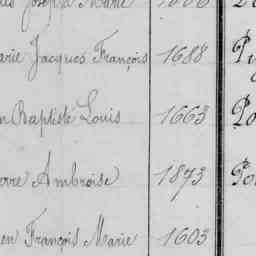 Joseph Marie 1606
arie Jacques François 1688
n Baptiste Louis 1663
erre Ambroise 1873
en François Marie 1603